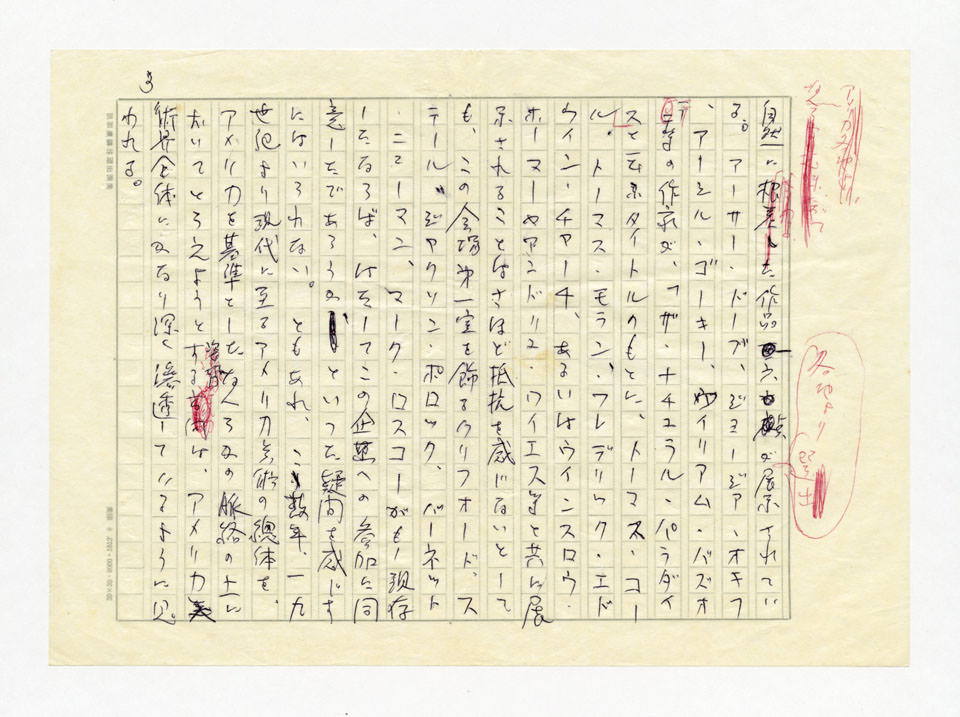 3
自然に根差した作品が展示されてい
る。アーサー・ドーブ、ジョージア・オキフ
、アーシル・ゴーキー、ウイリアム・バズオ
等の作家が、「ザ・ナチュラル・パラダイ
ス」と云うタイトルのもとに、トーマス・コー
ル、トーマス・モラン、フレデリック・エド
ウイン・チァーチ、あるいはウインスロウ・
ホーマーやアンドリュ・ワイエス等と共に展
示されることはさほど抵抗を感じないとして
も、この会場第一室を飾るクリフォード・ス
テール、ジャクソン・ポロック、バーネット
・ニューマン、マーク・ロスコーがもし現存
したならば、はたしてこの企画への参加に同
意したであろうか、といった疑問を感じず
にはいられない。ともあれ、ここ数年、一九
世紀より現代に至るアメリカ美術の總体を、
アメリカを基準としたなんらかの脈絡の上に
おいてとらえようとする姿勢は、アメリカ美
術界全体にかなり深く滲透しているように思
われる。
各地より
選出